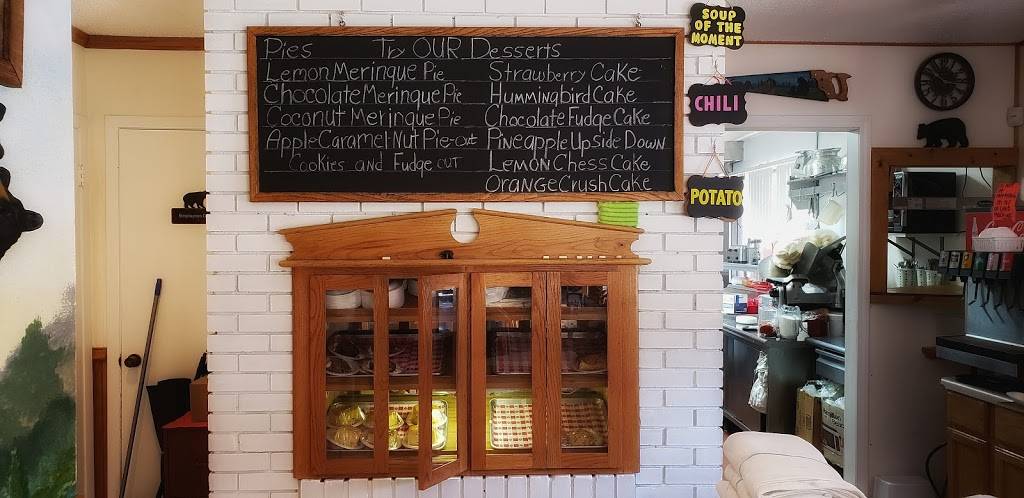 Pies Try OUR Desserts
Lemon Meringue Pie
Chocolate Meringue Pie
Coconut Meringue Pie
Apple Caramel Nut Pie-out
Cookies and Fudge OUT
Strawberry Cake
Hummingbird Cake
Chocolate Fudge Cake
Pineapple Upside Down
Lemon Chess Cake
Orange Crush Cake
SOUP
OF THE
MOMENT
CHILI
POTATO